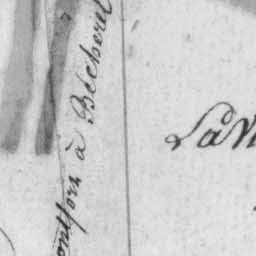 ontfort à Becherel
La